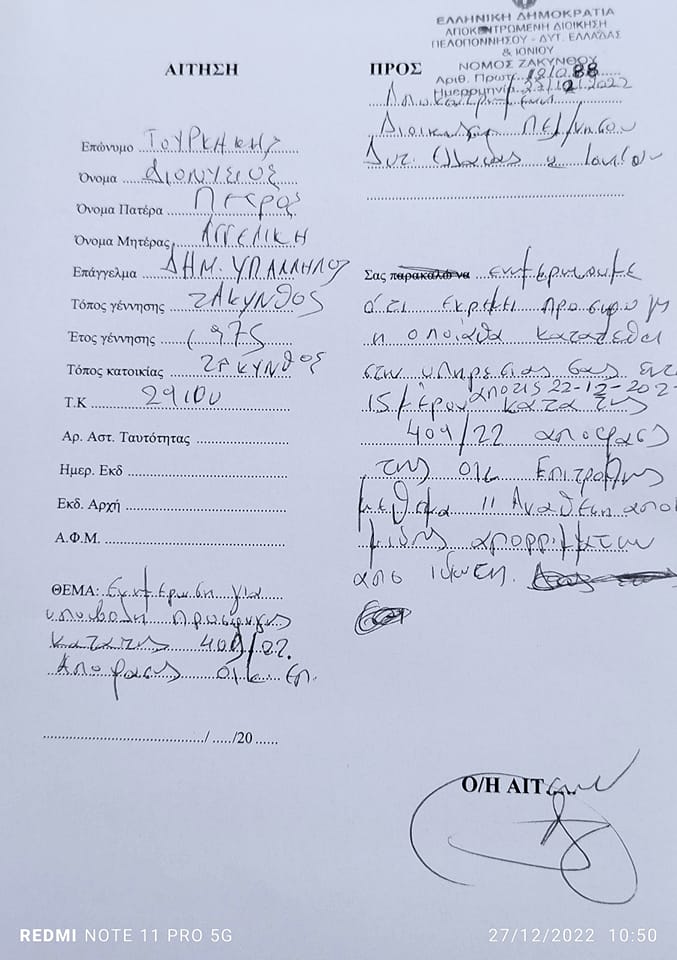 ΕΛΛΗΝΙΚΗ ΔΗΜΟΚΡΑΤΙΑ
ΑΠΟΚΕΝΤΡΩΜΕΝΗ ΔΙΟΙΚΗΣΗ
ΠΕΛΟΠΟΝΝΗΣΟΥ - ΔΥΤ. ΕΛΛΑΔΑΣ
& ΙΟΝΙΟΥ
ΝΟΜΟΣ ΖΑΚΥΝΘΟΥ
Αριθ. Πρωτ.
Ημερομηνία 27/12/2022
ΑΙΤΗΣΗ
Επώνυμο ΤΟΥΡΚΑΚΗΣ
Όνομα ΔΙΟΝΥΣΙΟΣ
Όνομα Πατέρα ΠΕΤΡΟΣ
Όνομα Μητέρας ΑΓΓΕΛΙΚΗ
Επάγγελμα ΔΗΜ. ΥΠΑΛΛΗΛΟΣ
Τόπος γέννησης ΖΑΚΥΝΘΟΣ
Έτος γέννησης 1975
Τόπος κατοικίας ΖΑΚΥΝΘΟΣ
Τ.Κ 29100
Αρ. Αστ. Ταυτότητας
Ημερ. Εκδ
Εκδ. Αρχή
Α.Φ.Μ.
ΘΕΜΑ: Ενημέρωση για
υποβολή προσφυγης
κατα της 409/22
Αποφασης Οικ. Επ.
/ /20
ΠΡΟΣ
Αποκεντρωμενη
Διοικηση Πελ/νησου
Δυτ. Ελλαδας & Ιονιου
Σας παρακαλώ να ενημερωνουμε
ότι εκκρεμει προσφυγη
η οποία θα κατατεθει
στην υπηρεσια σας εντ
15/μερου απο τις 22-12-202
κατα της
409/22 αποφασης
της Οικ Επιτροπης
με θεμα "Αναθεση απο
μιδης απορριμματων
απο ιδιωτη.
Ο/Η ΑΙΤ
REDMI NOTE 11 PRO 5G
27/12/2022 10:50